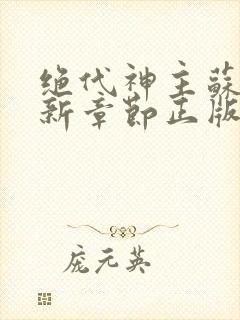 绝代神主蘇
新章節正版
庞元英